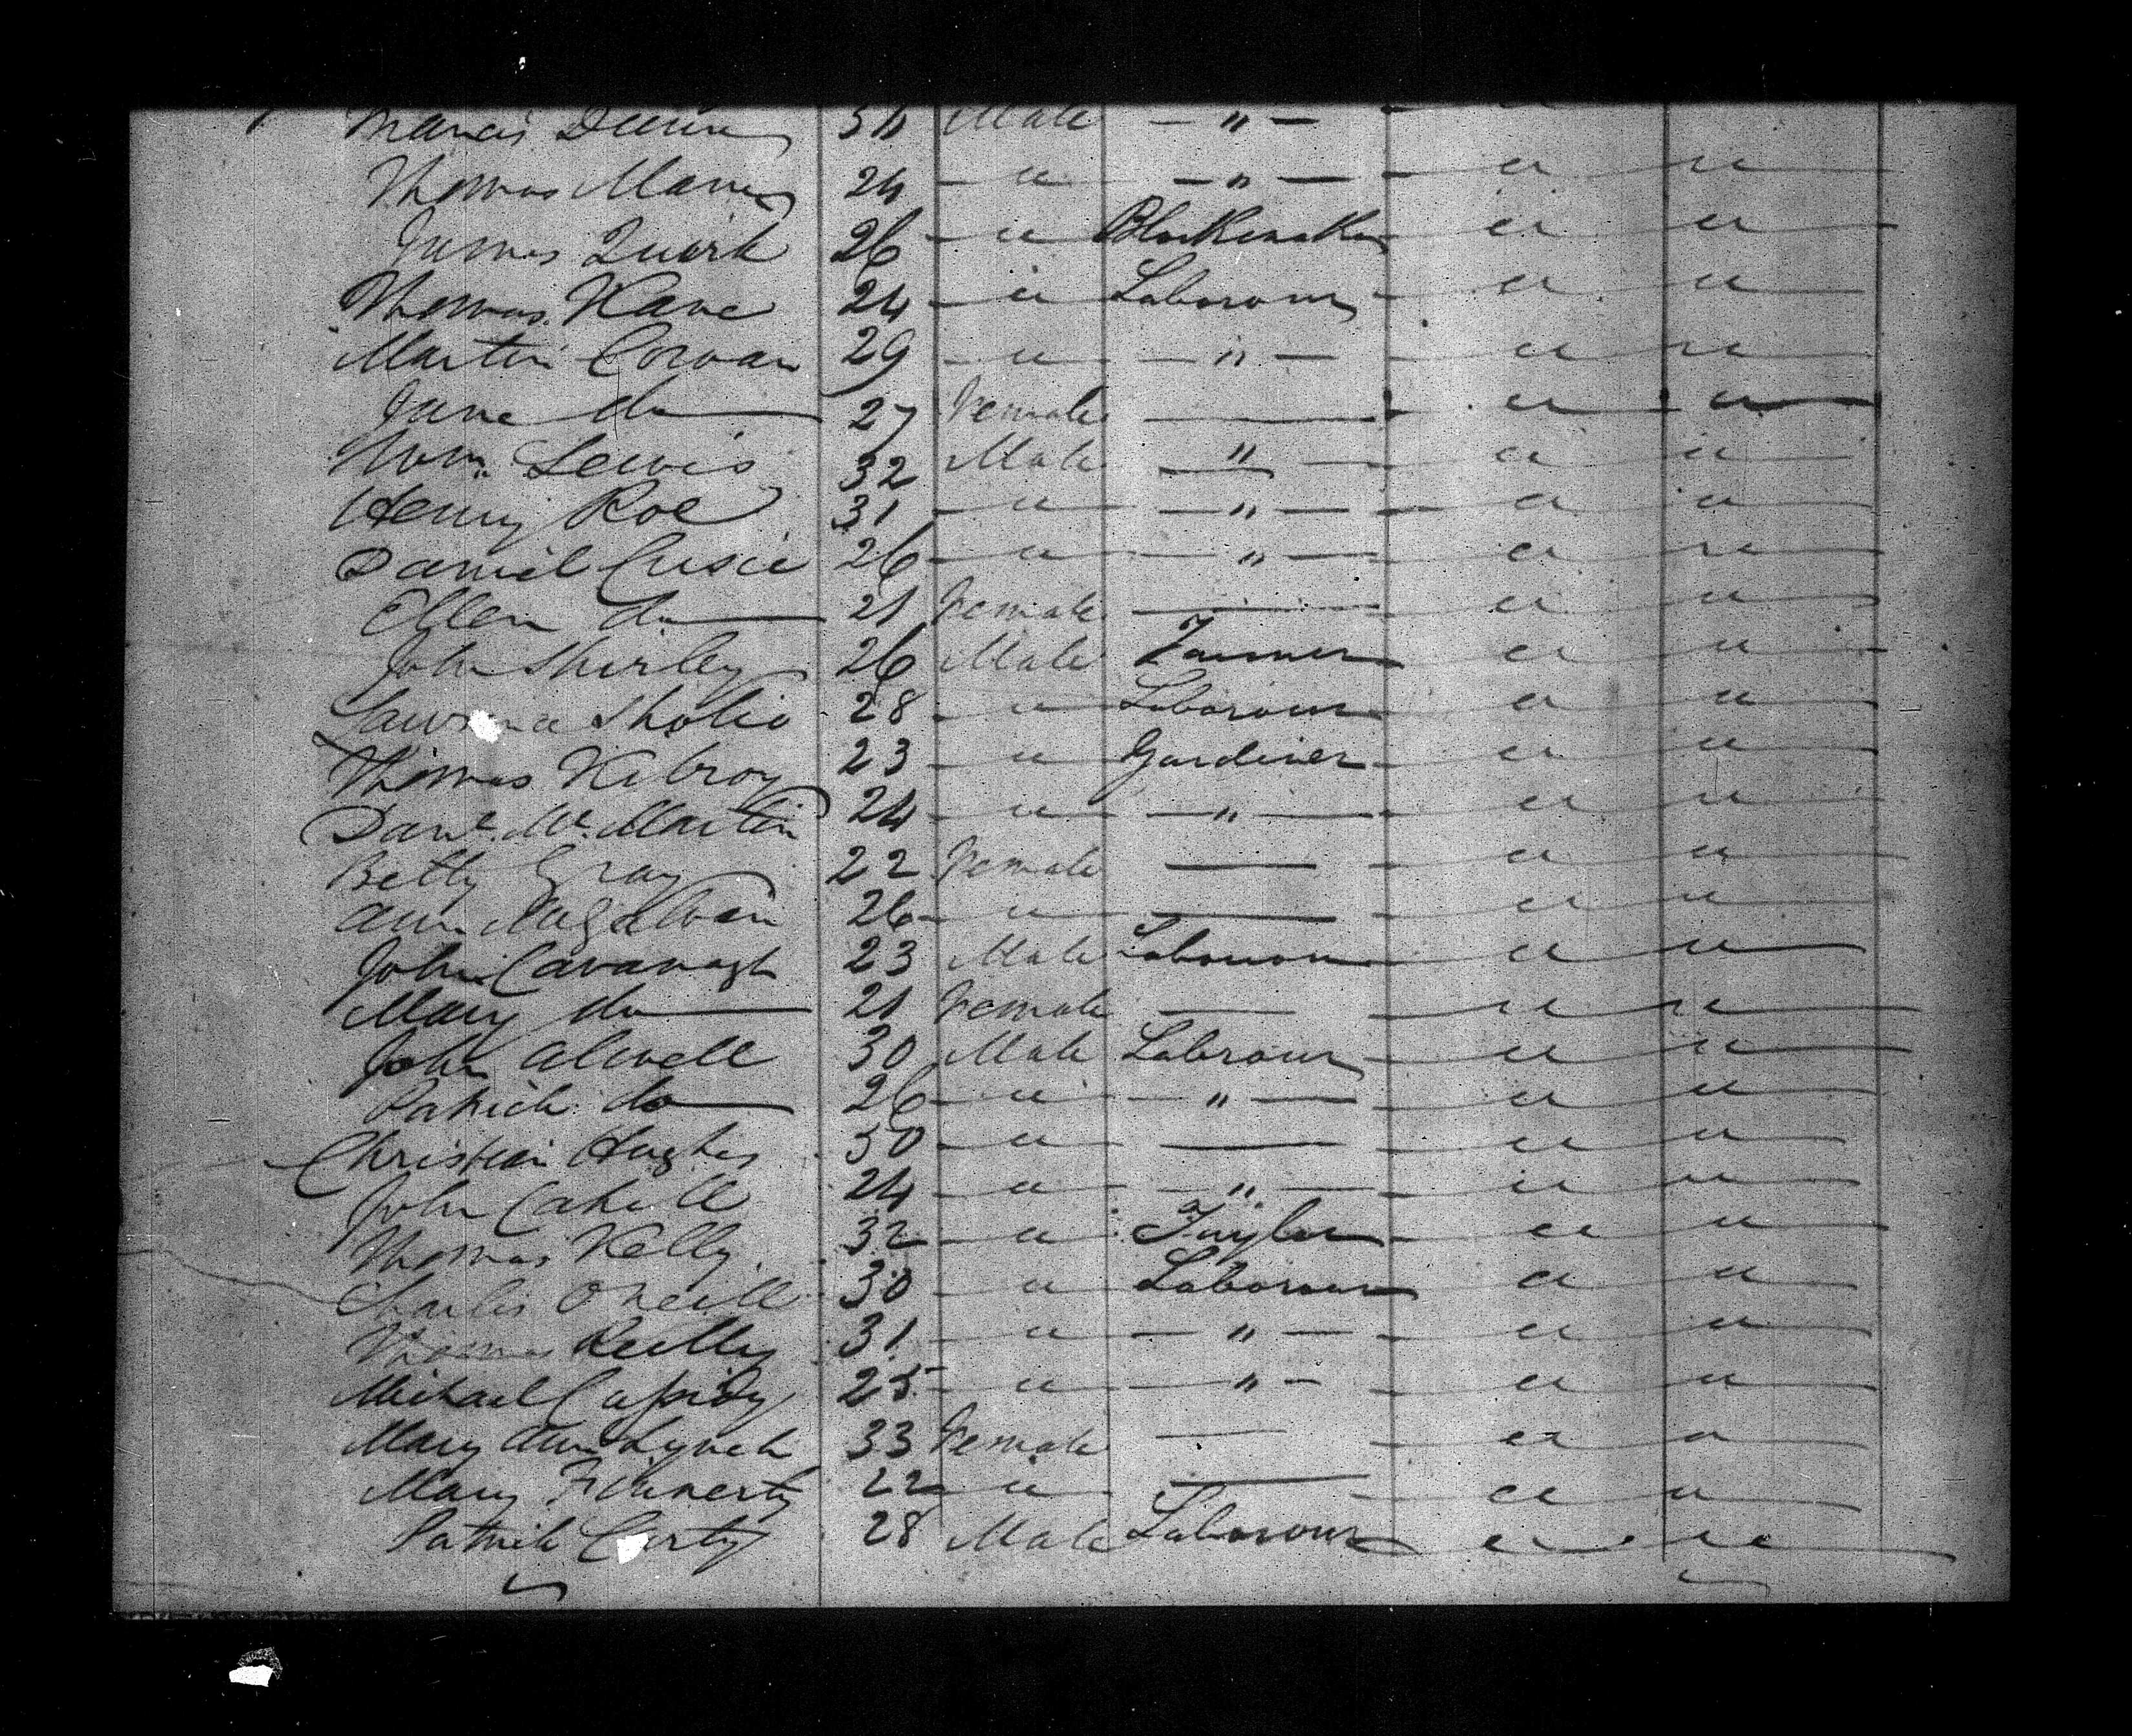 Francis Dunn 30 Male — " —
Thomas Mann 24 — " — — " — — " — " —
James Quirk 26 — " Blockmaker — " — " —
Thomas Kane 24 — " — Labourer — " — " —
Martin Corvan 29 — " — — " — — " — " —
Jane do — 27 Female — — " — " —
Wm. Lewis 32 Male — " — — " — " —
Henry Roe 31 — " — — " — — " — " —
Daniel Cusic 26 — " — — " — — " — " —
Ellen do — 21 Female — — " — " —
John Shirley 26 Male Farmer — " — " —
28 — " — Labourer — " — " —
Thomas Kilroy 23 — " — Gardiner — " — " —
Danl. McMartin 24 — " — — " — — " — " —
Betty Gray 22 Female — — " — " —
Ann 26 — " — — — " — " —
John Cavanagh 23 Male Labourer — " — " —
Mary do — 21 Female — — " — " —
John Alwell 30 Male Labrour — " — " —
Patrick do — 26 — " — — " — — " — " —
Christian Hughes 30 — " — — — " — " —
John Cahill 24 — " — — " — — " — " —
Thomas Kelly 32 — " — Taylor — " — " —
Charles O Neill 30 — " — Labourer — " — " —
Thomas Reilly 31 — " — — " — — " — " —
Michael Cassidy 25 — " — — " — — " — " —
Mary Ann Lynch 33 Female — — " — " —
Mary Flaherty 22 — " — — — " — " —
Patrick 28 Male Labourer — " — " —